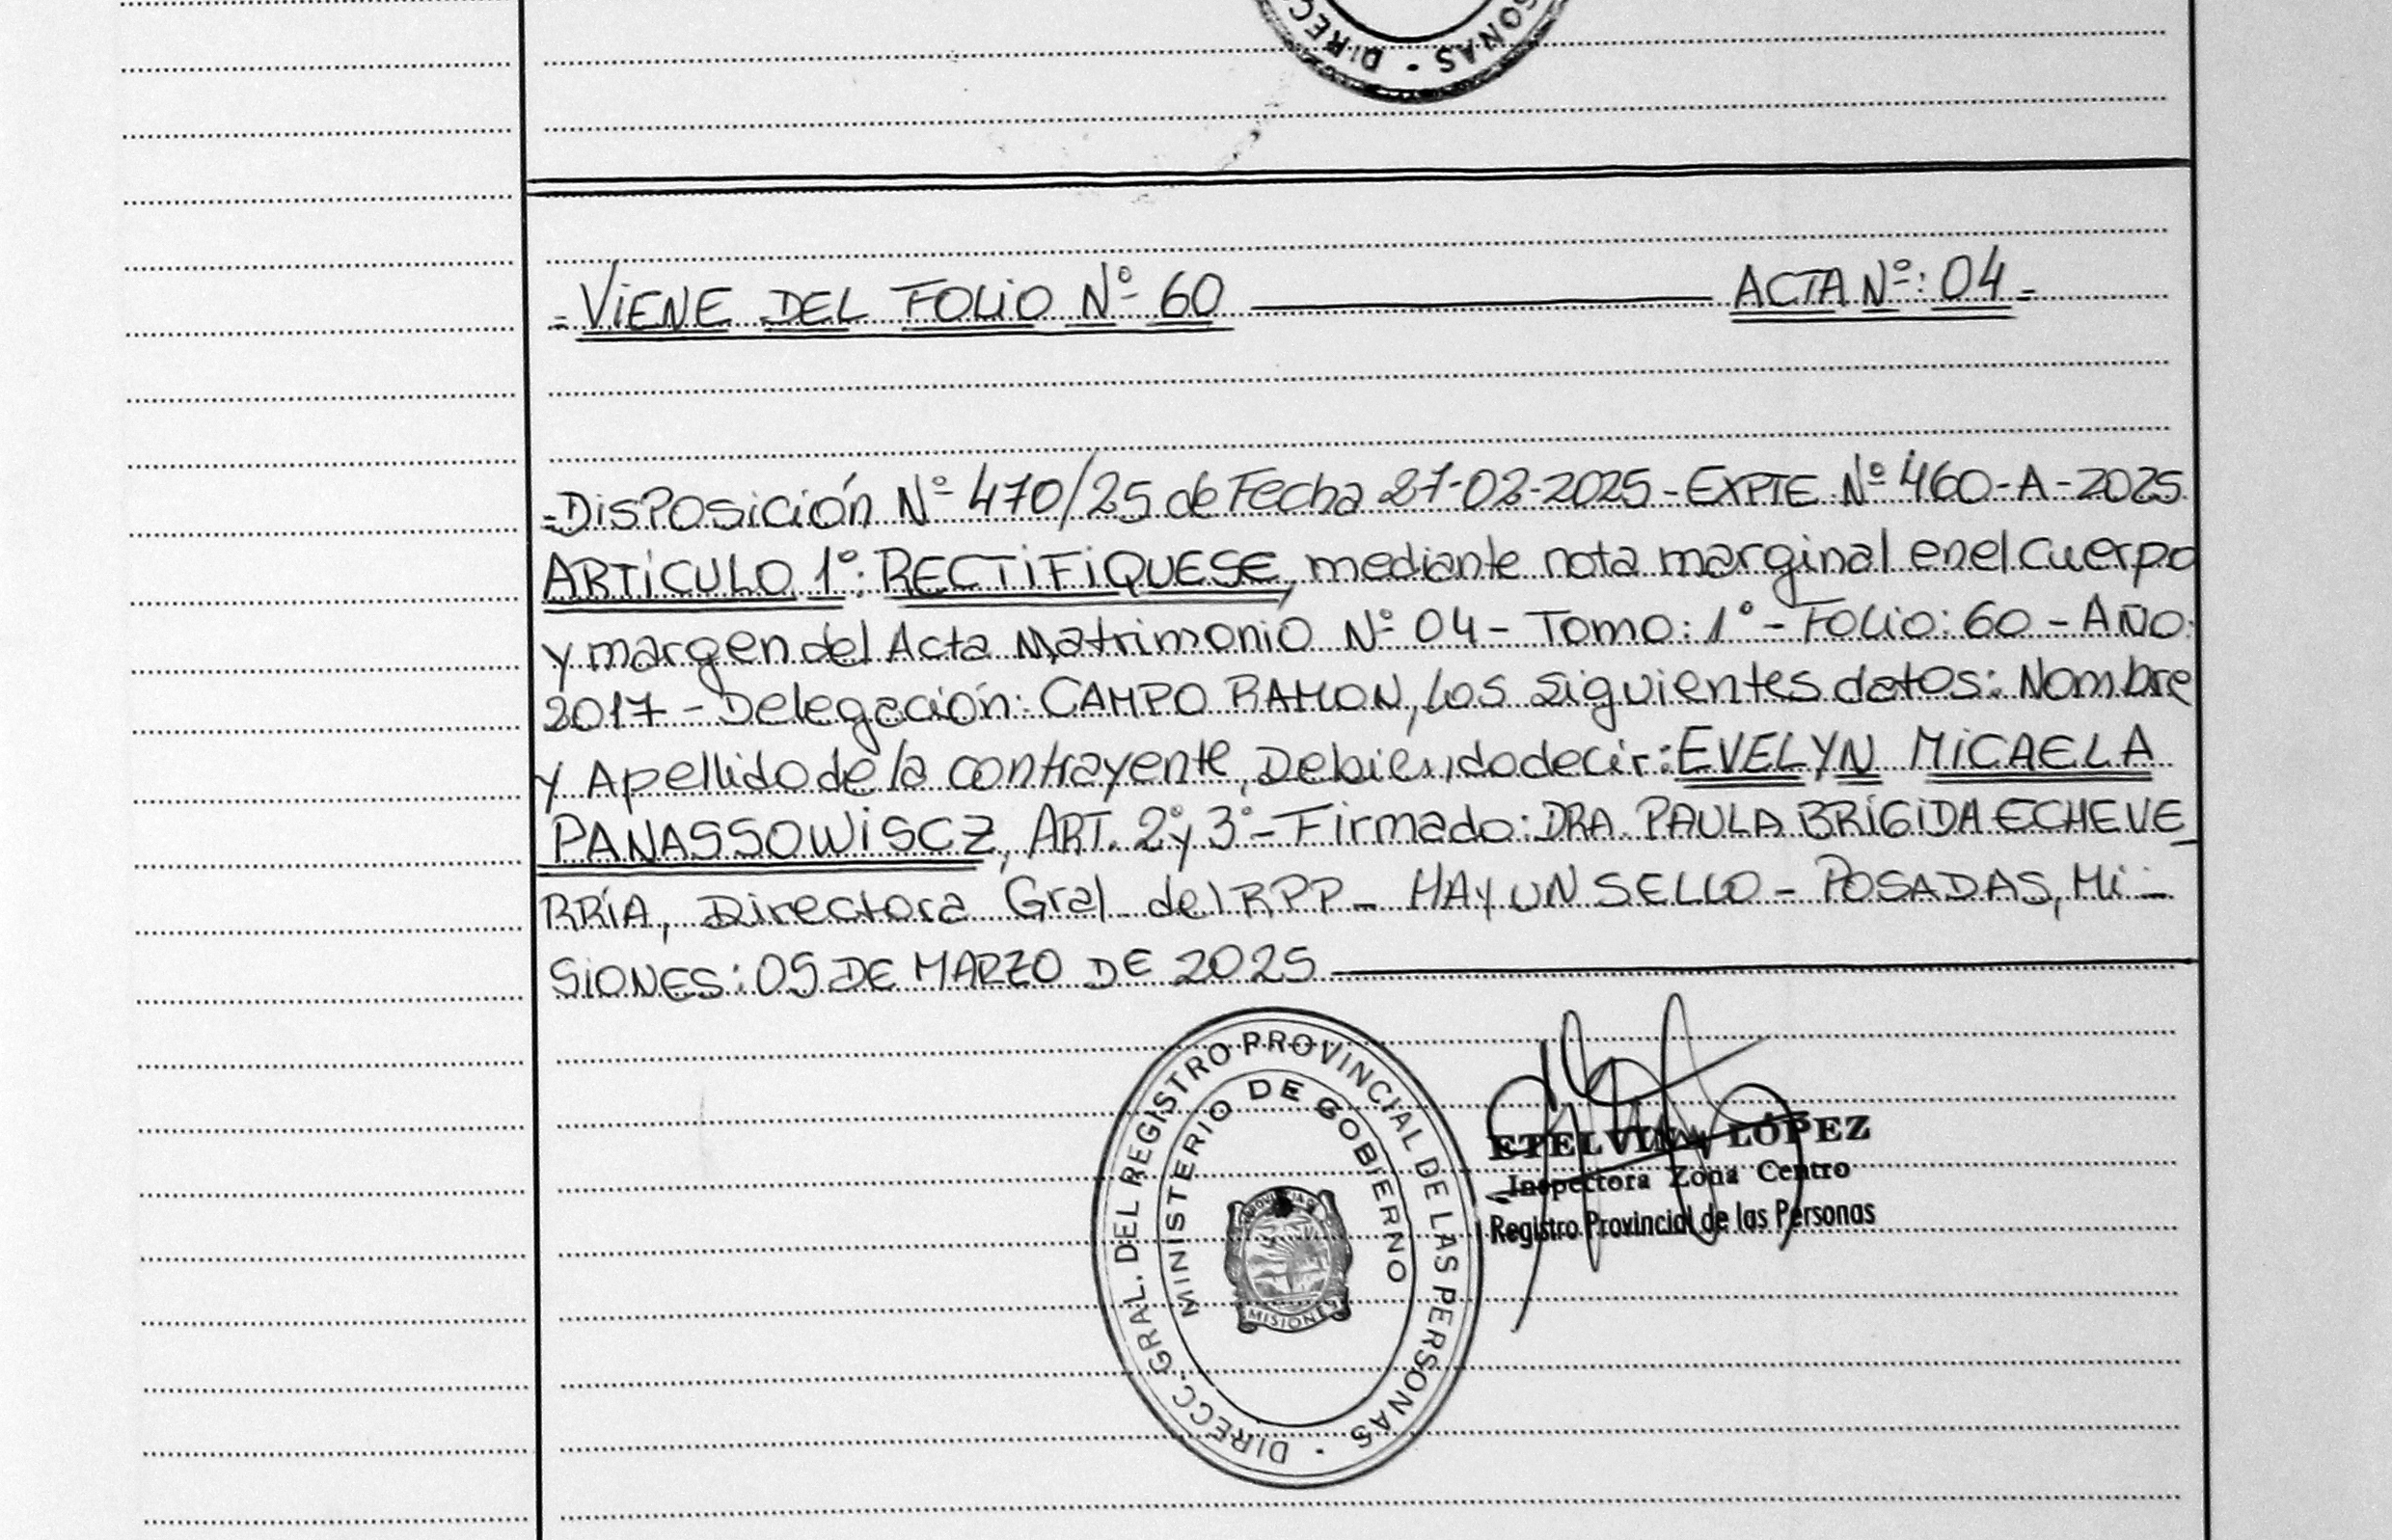 DIRECC
SONAS
=VIENE DEL FOLIO Nº 60 ACTA Nº: 04=
=DISPOSICIÓN Nº 470/25 de Fecha 27-02-2025 - EXPTE Nº 460-A-2025
ARTÍCULO 1º: RECTIFIQUESE, mediante nota marginal en el Cuerpo
y margen del Acta Matrimonio Nº 04 - Tomo: 1º - Folio: 60 - AÑO:
2017 - Delegación: CAMPO RAMON, los siguientes datos: Nombre
y Apellido de la contrayente, Debiendo decir: EVELYN MICAELA
PANASSOWISCZ, ART. 2º y 3º - Firmado: DRA. PAULA BRÍGIDA ECHEVE_
RRÍA, Directora Gral del RPP - HAY UN SELLO - POSADAS, Mi -
SIONES: 05 DE MARZO DE 2025
DIRECC. GRAL. DEL REGISTRO PROVINCIAL DE LAS PERSONAS
MINISTERIO DE GOBIERNO
MISIONES
ETELVINA LÓPEZ
Inspectora Zona Centro
Registro Provincial de las Personas